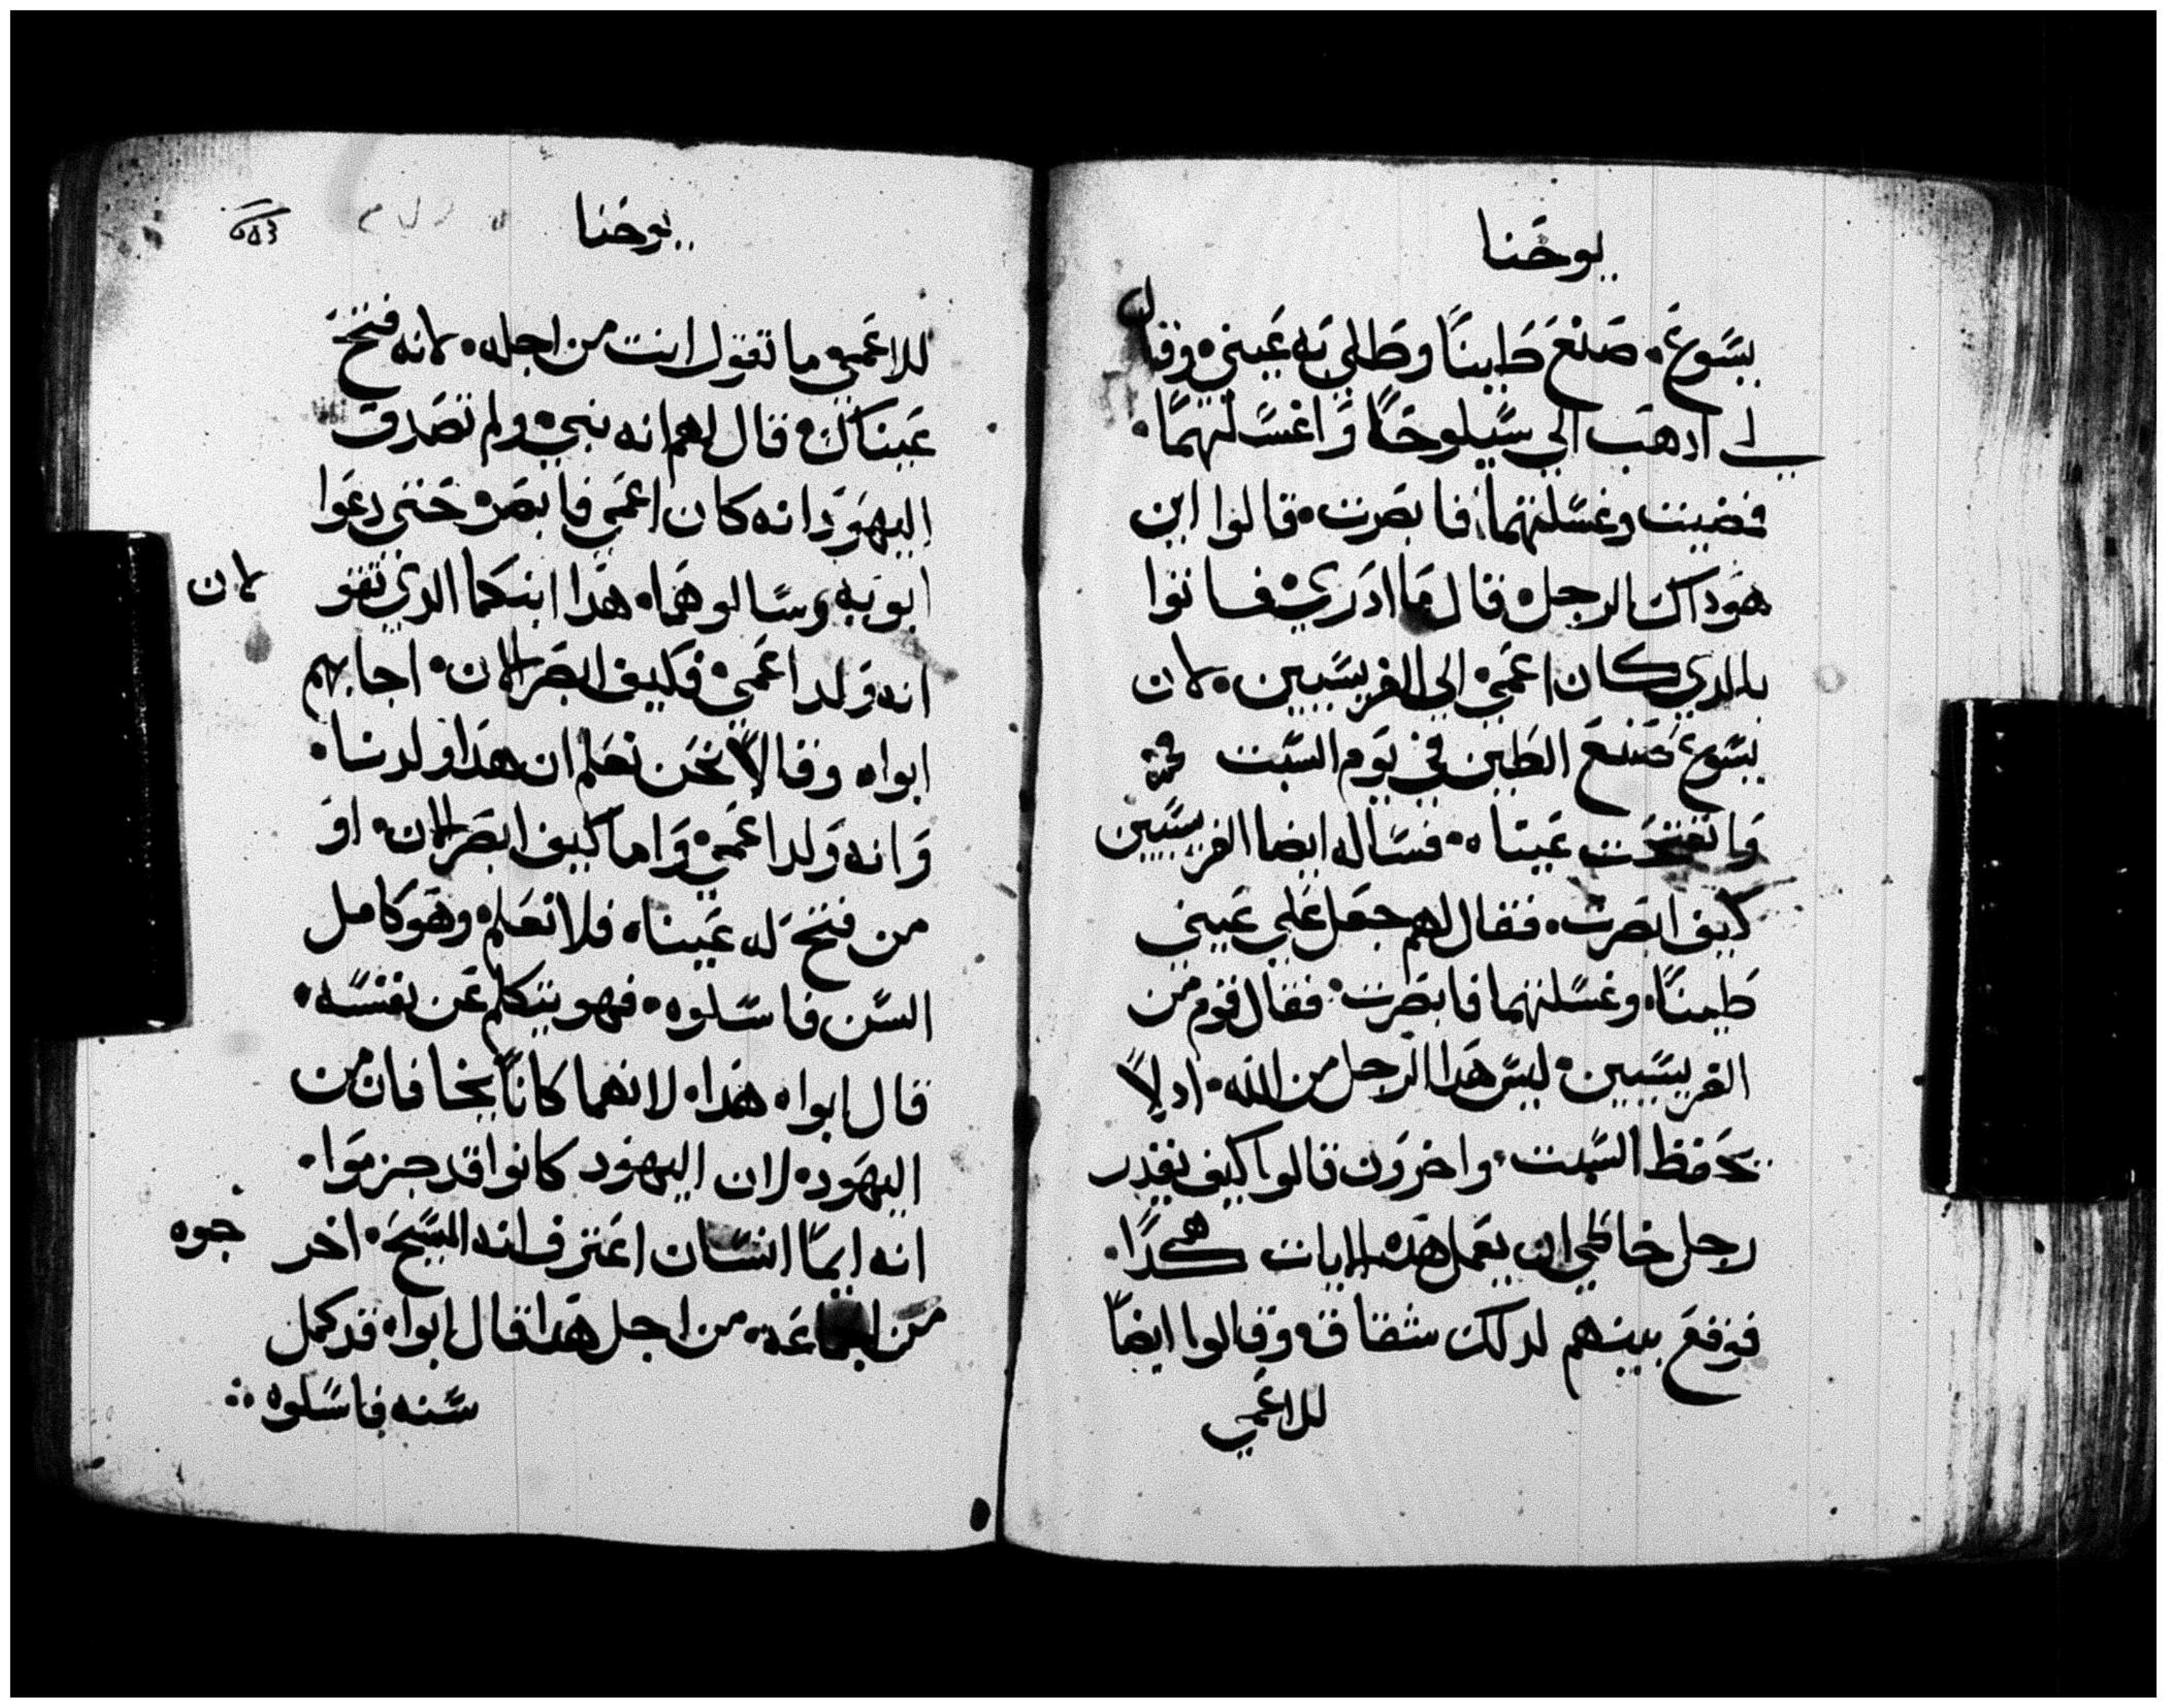 يوحنا
يسوع، صنع طينًا وطلي به عيني، وقال
لي ادهب الي سيلوحًا واغسلهما،
فمضيت وغسلتهما، فابصرت، قالوا اين
هو داك الرجل، قال ما ادري، فاتوا
بالدي كان اعمي، الي الفريسيين، لان
يسوع صنع الطين في يوم السبت
وانفتحت عيناه، فساله ايضا الفريسيين
كيف ابصرت، فقال لهم جعل علي عيني
طينًا، وغسلتهما فابصرت، فقال قوم من
الفريسيين، ليس هدا الرجل من الله، اد لا
يحفظ السبت، واخرون قالوا كيف يقدر
رجل خاطي ان يعمل هده الايات هكدًا،
فوقع بينهم لدلك شقاق، وقالوا ايضًا
للاعمي
يوحنا
للاعمي ما تقول انت من اجله، لانه فتح
عيناك، قال لهم انه نبي، ولم تصدق
اليهود انه كان اعمي فابصر، حتى دعوا
ابويه وسالوهما، هدا ابنكما الدي تقو لان
انه ولد اعمي، فكيف ابصر الان، اجابهم
ابواه وقالا نحن نعلم ان هدا ولدنا،
وانه ولد اعمي، واما كيف ابصر الان، او
من فتح له عيناه، فلا نعلم، وهو كامل
السن فاسلوه، فهو يتكلم عن نفسه،
قال ابواه هدا، لانهما كانا يخافان من
اليهود، لان اليهود كانوا قد جزموا،
انه ايما انسان اعترف انه المسيح، اخر جوه
من الجماعه، من اجل هدا قال ابواه قد كمل
سنه فاسلوه